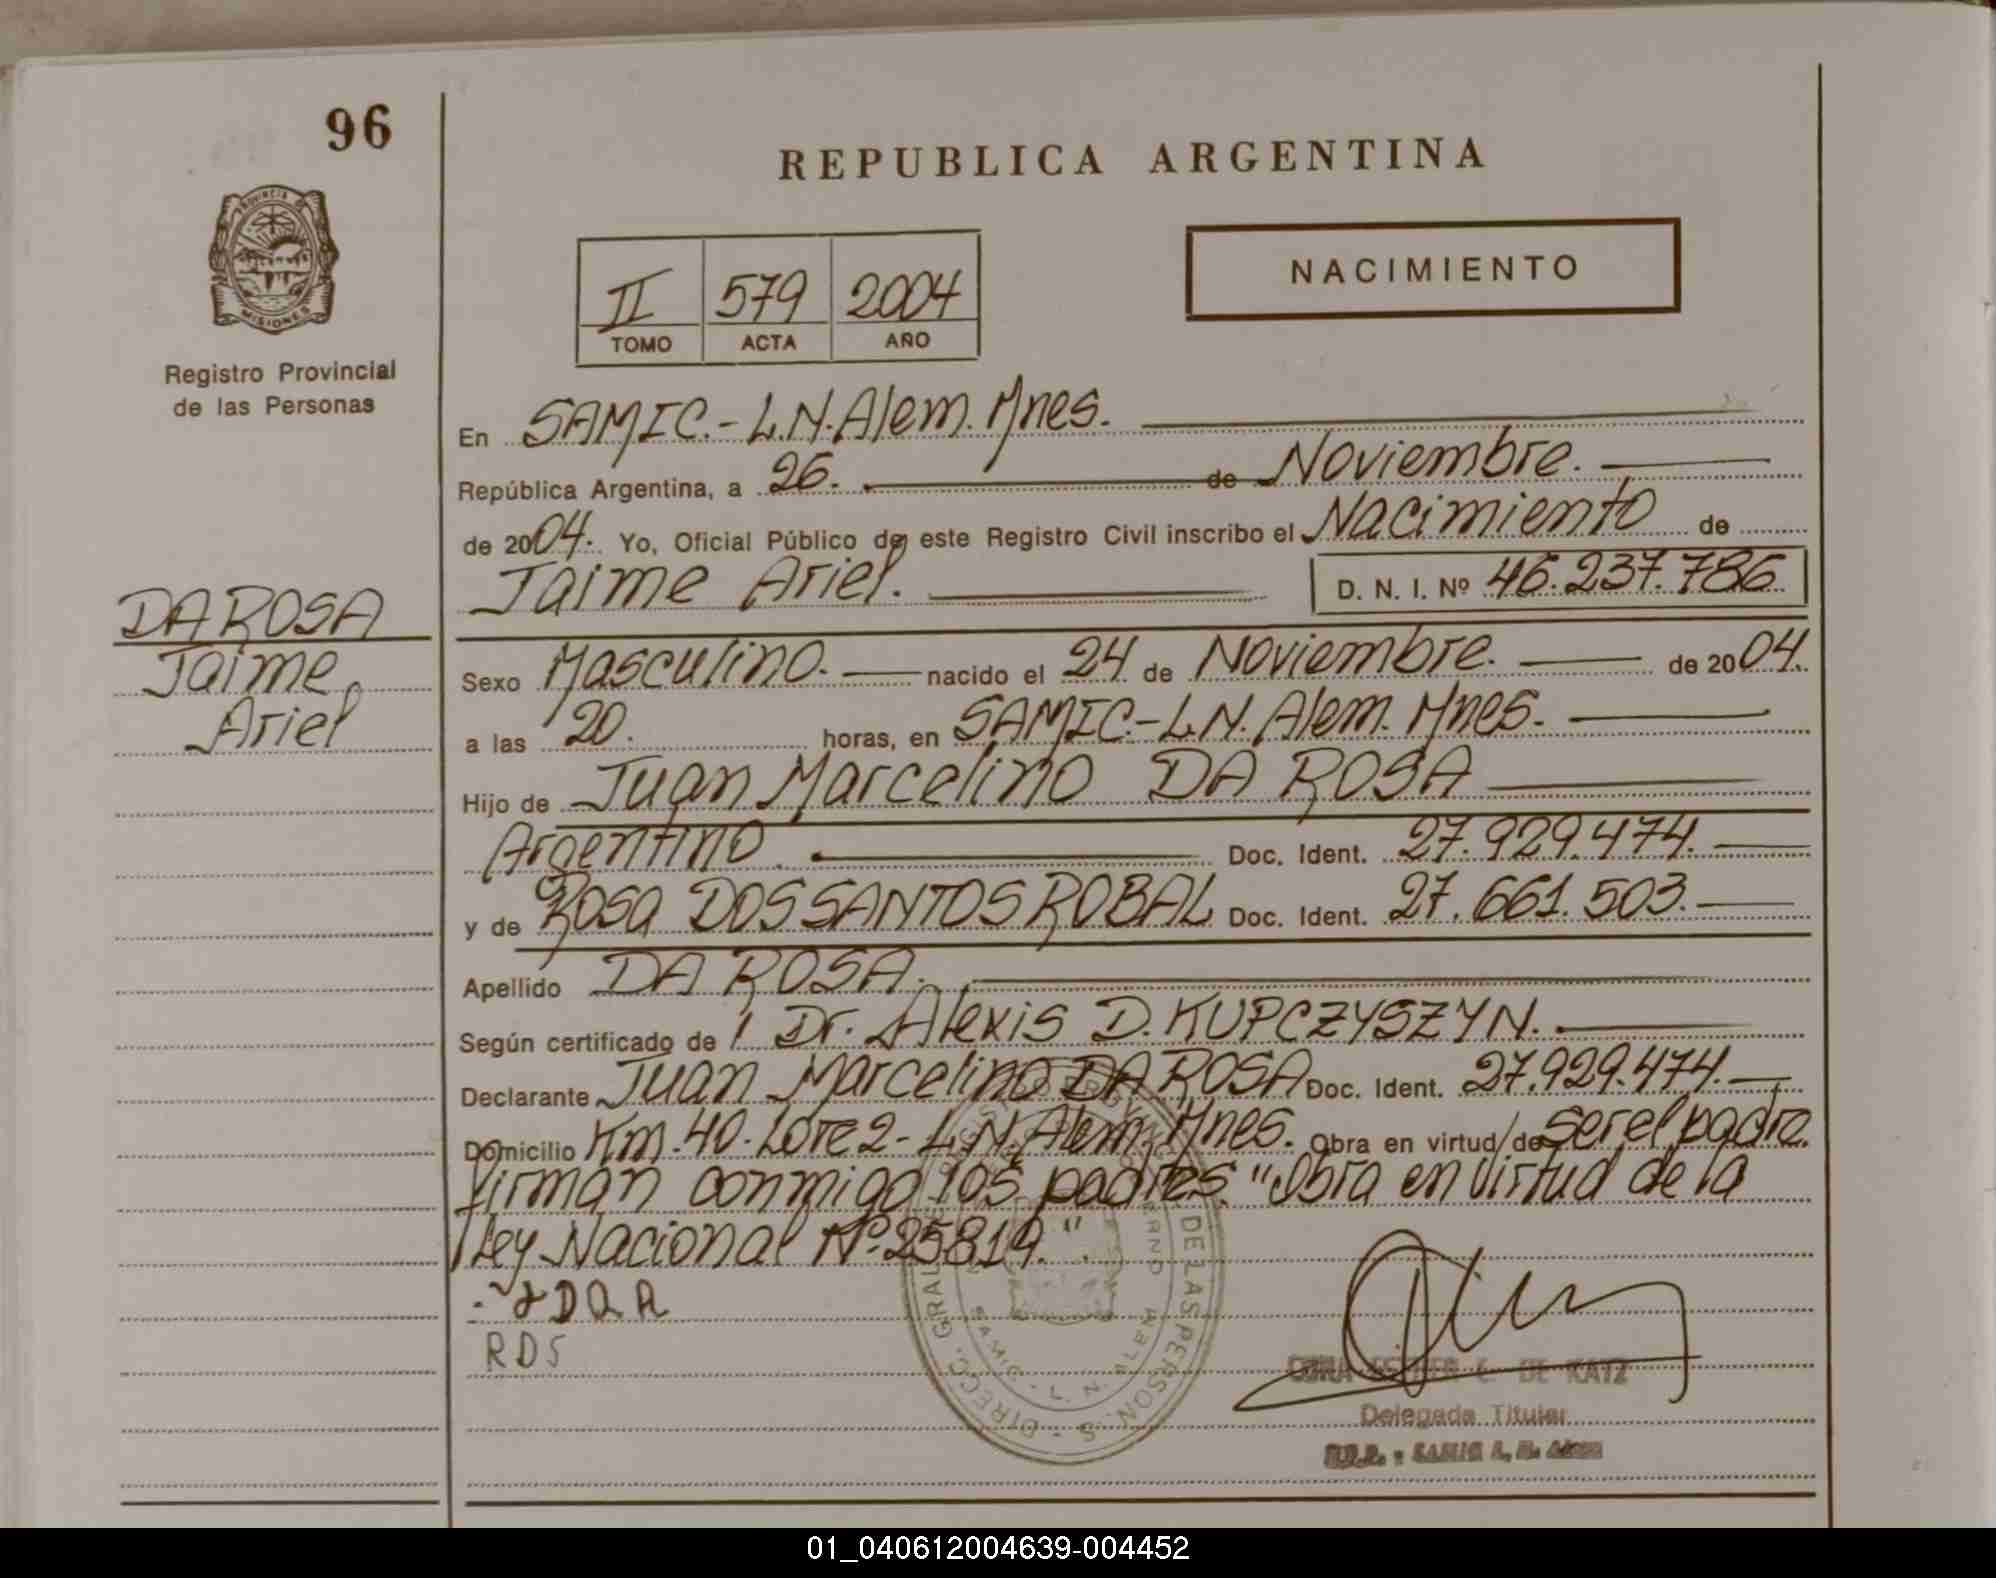 96
REPUBLICA ARGENTINA
PROVINCIA DE
MISIONES
Registro Provincial
de las Personas
II 579 2004
TOMO ACTA AÑO
NACIMIENTO
En SAMIC.-L.N.Alem.Mnes.
República Argentina, a 26. de Noviembre.
de 2004. Yo, Oficial Público de este Registro Civil inscribo el Nacimiento de
Jaime Ariel. D. N. I. Nº 46.237.786.
DA ROSA
Jaime
Ariel
Sexo Masculino. nacido el 24 de Noviembre. de 2004.
a las 20. horas, en SAMIC.-L.N.Alem.Mnes.
Hijo de Juan Marcelino DA ROSA
Argentino. Doc. Ident. 27.929.474.
y de Rosa DOS SANTOS ROBAL Doc. Ident. 27.661.503.
Apellido DA ROSA.
Según certificado de Dr. Alexis D. KUPCZYSZYN.
Declarante Juan Marcelino DA ROSA Doc. Ident. 27.929.474.
Domicilio Km.40.Lote 2-L.N.Alem.Mnes. Obra en virtud de ser el padre.
firman conmigo los padres. "Obra en virtud de la
Ley Nacional Nº 25819.".
RDS
DE KATZ
Delegada Titular
01_040612004639-004452